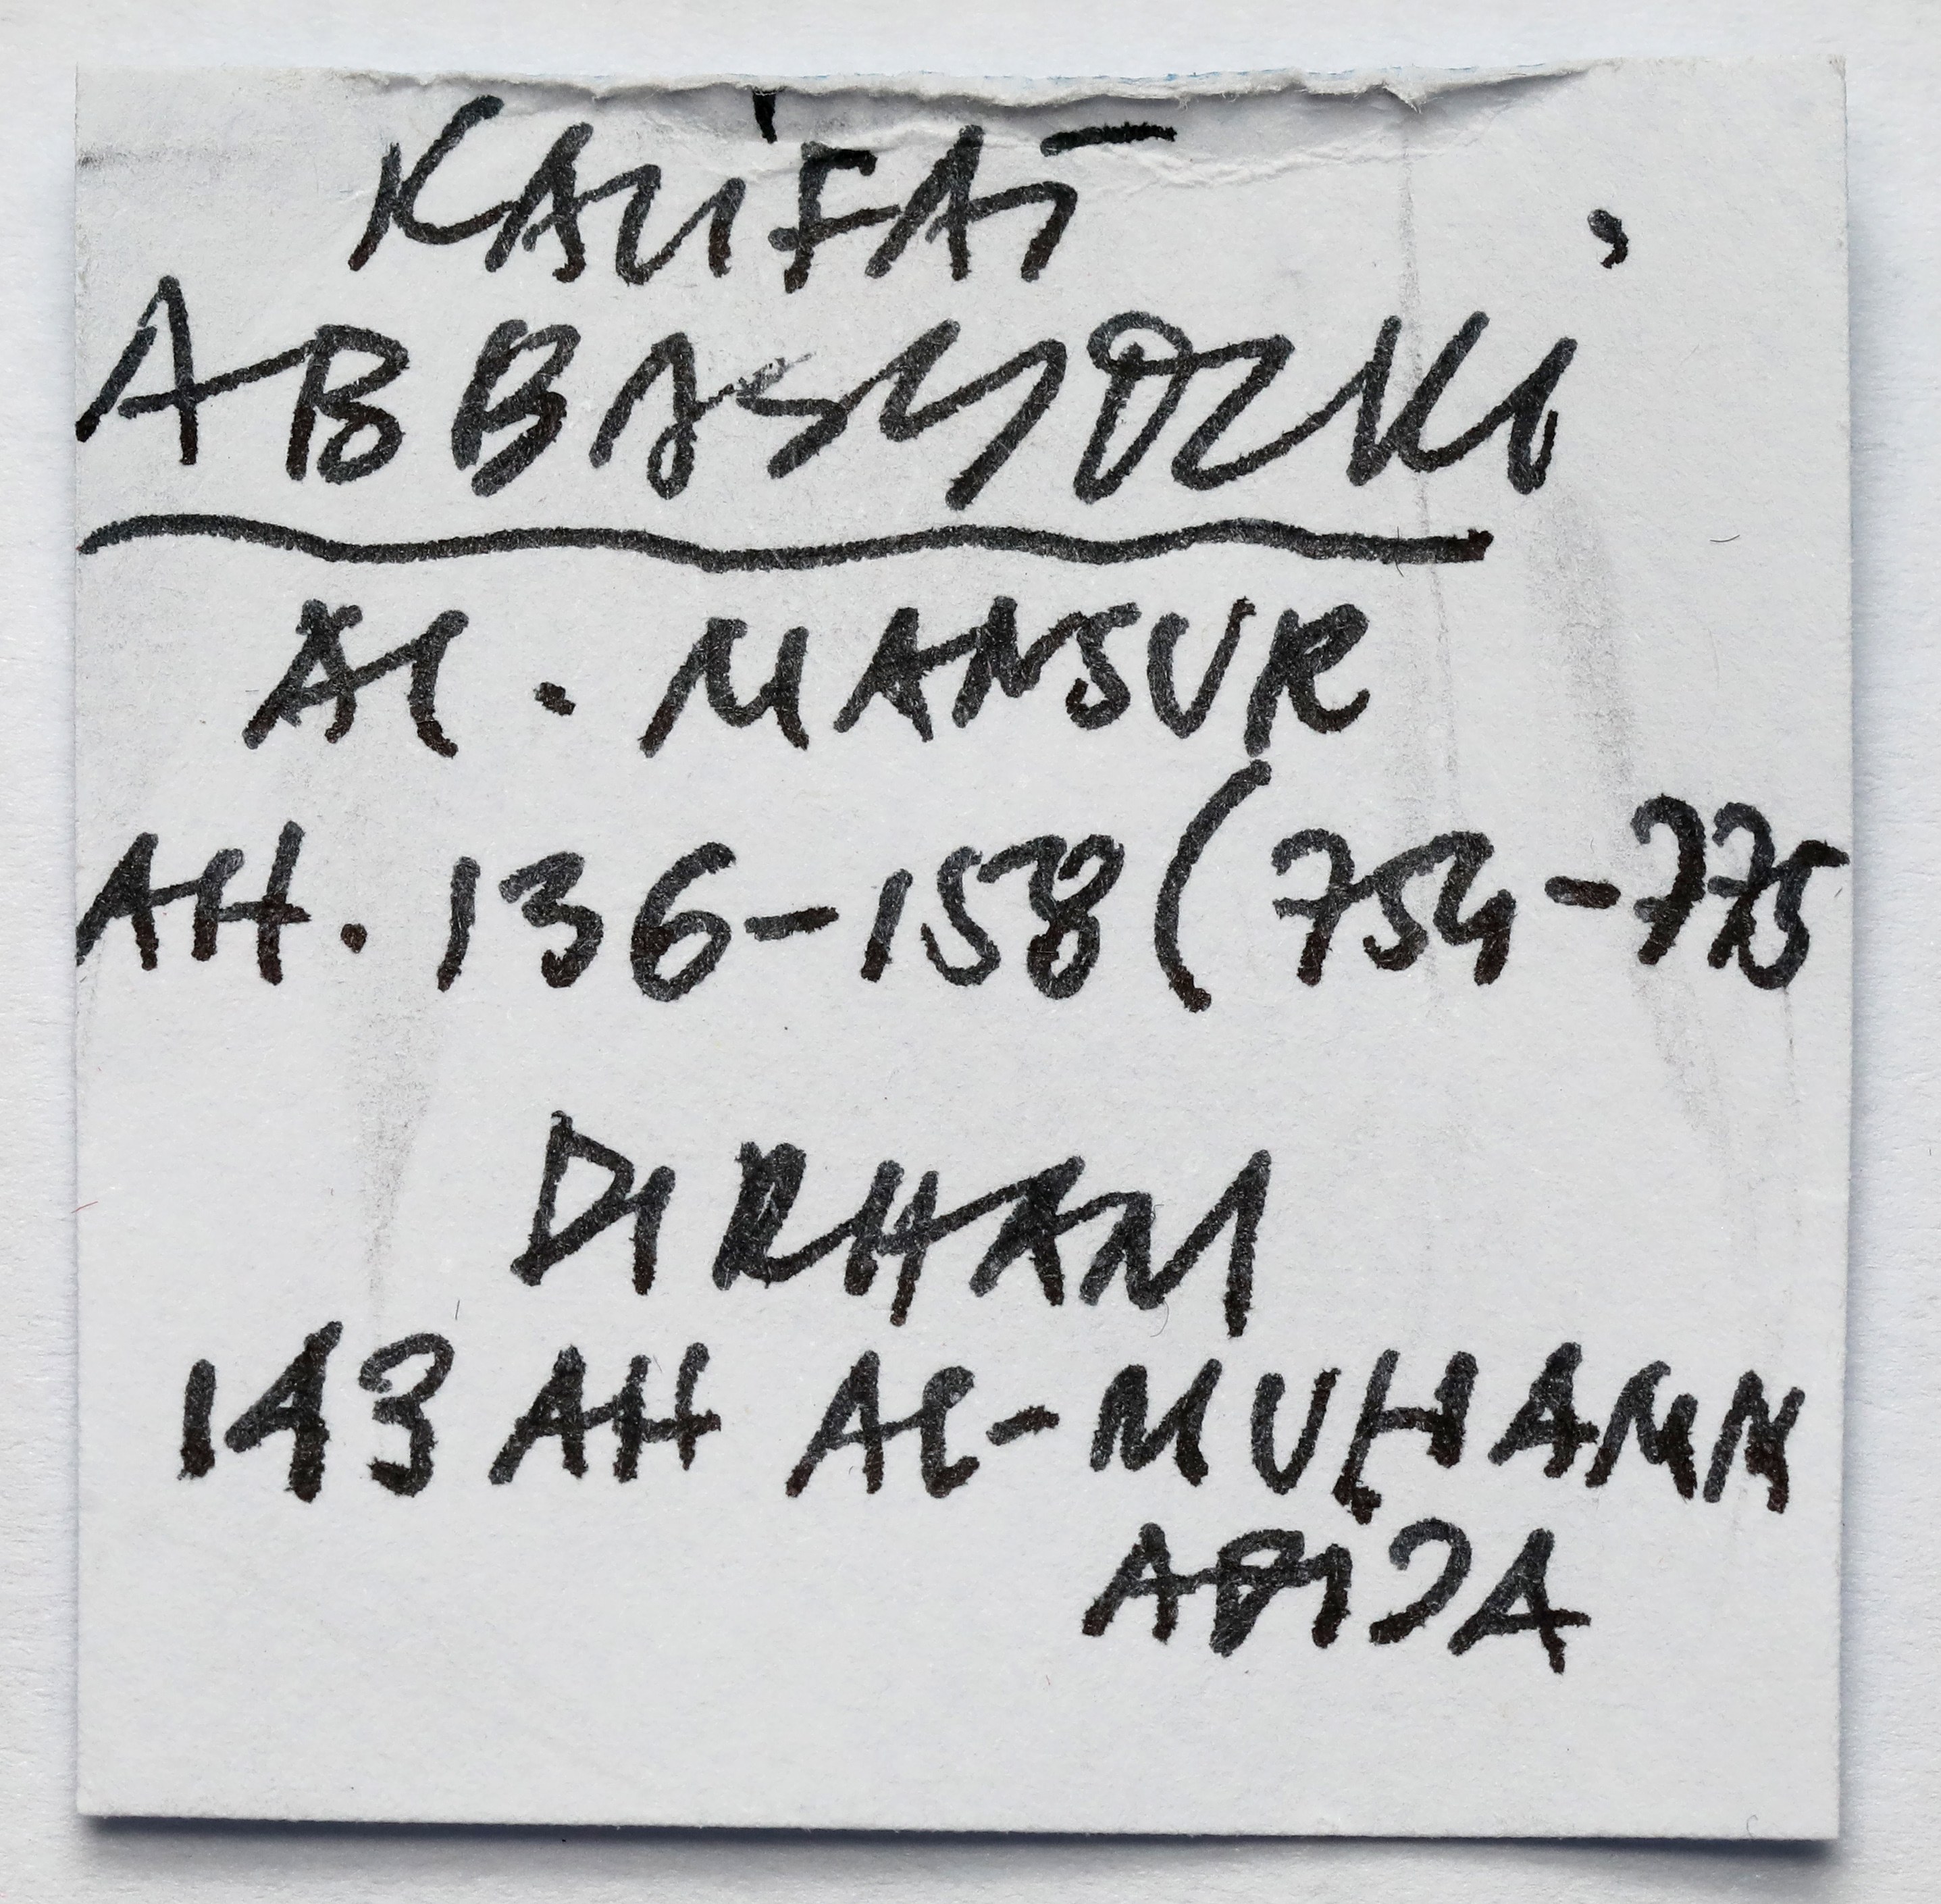 KALIFAT
ABBASYDZKI
AL. MANSUR
AH. 136-158 (754-775
DIRHAM
143 AH AL-MUHAMM
ADIJA